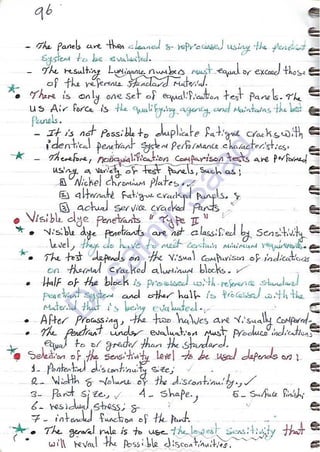 96
- The Panels are then cleaned & reprocessed using the penetrant
System to be evaluated.
- The resulting Luminance numbers must equal or exceed those
of the reference Standard Material.
• There is only one set of equalification test Panels. The
US Air Force is the qualifying agency and Maintains the best
Panels.
- It is not Possible to duplicate Fatigue cracks with
identical penetrant System Performance characteristics.
- Therefore, requalification Comparison tests are Performed
using a variety of test Panels, Such as;
1 Nickel chromium Plates.
2 alternate Fatigue cracked Panels. &
3 actual Service cracked Parts
• Visible dye Penetrants "Type II"
• Visible dye penetrants are not classified by Sensitivity
level, they do have to meet certain minimum requirements.
• The test depends on the Visual Comparison of indications
on thermal cracked aluminum blocks.
• Half of the block is processed with the reference standard
penetrant System and other half is Processed with the
Material that is being evaluated.
• After Processing, the two halves are Visually Compared.
• The penetrant under evaluation Must Produce indications
equal to or greater than the Standard.
• Selection of the Sensitivity level to be used depends on:
1- Potential discontinuity Size,
2- Width & Volume of the discontinuity,
3- Part Size, 4- Shape, 5- Surface finish;
6- residual Stress, &
7- intended function of the Part.
• The general rule is to use the lowest Sensitivity that
will reveal the Possible discontinuities.